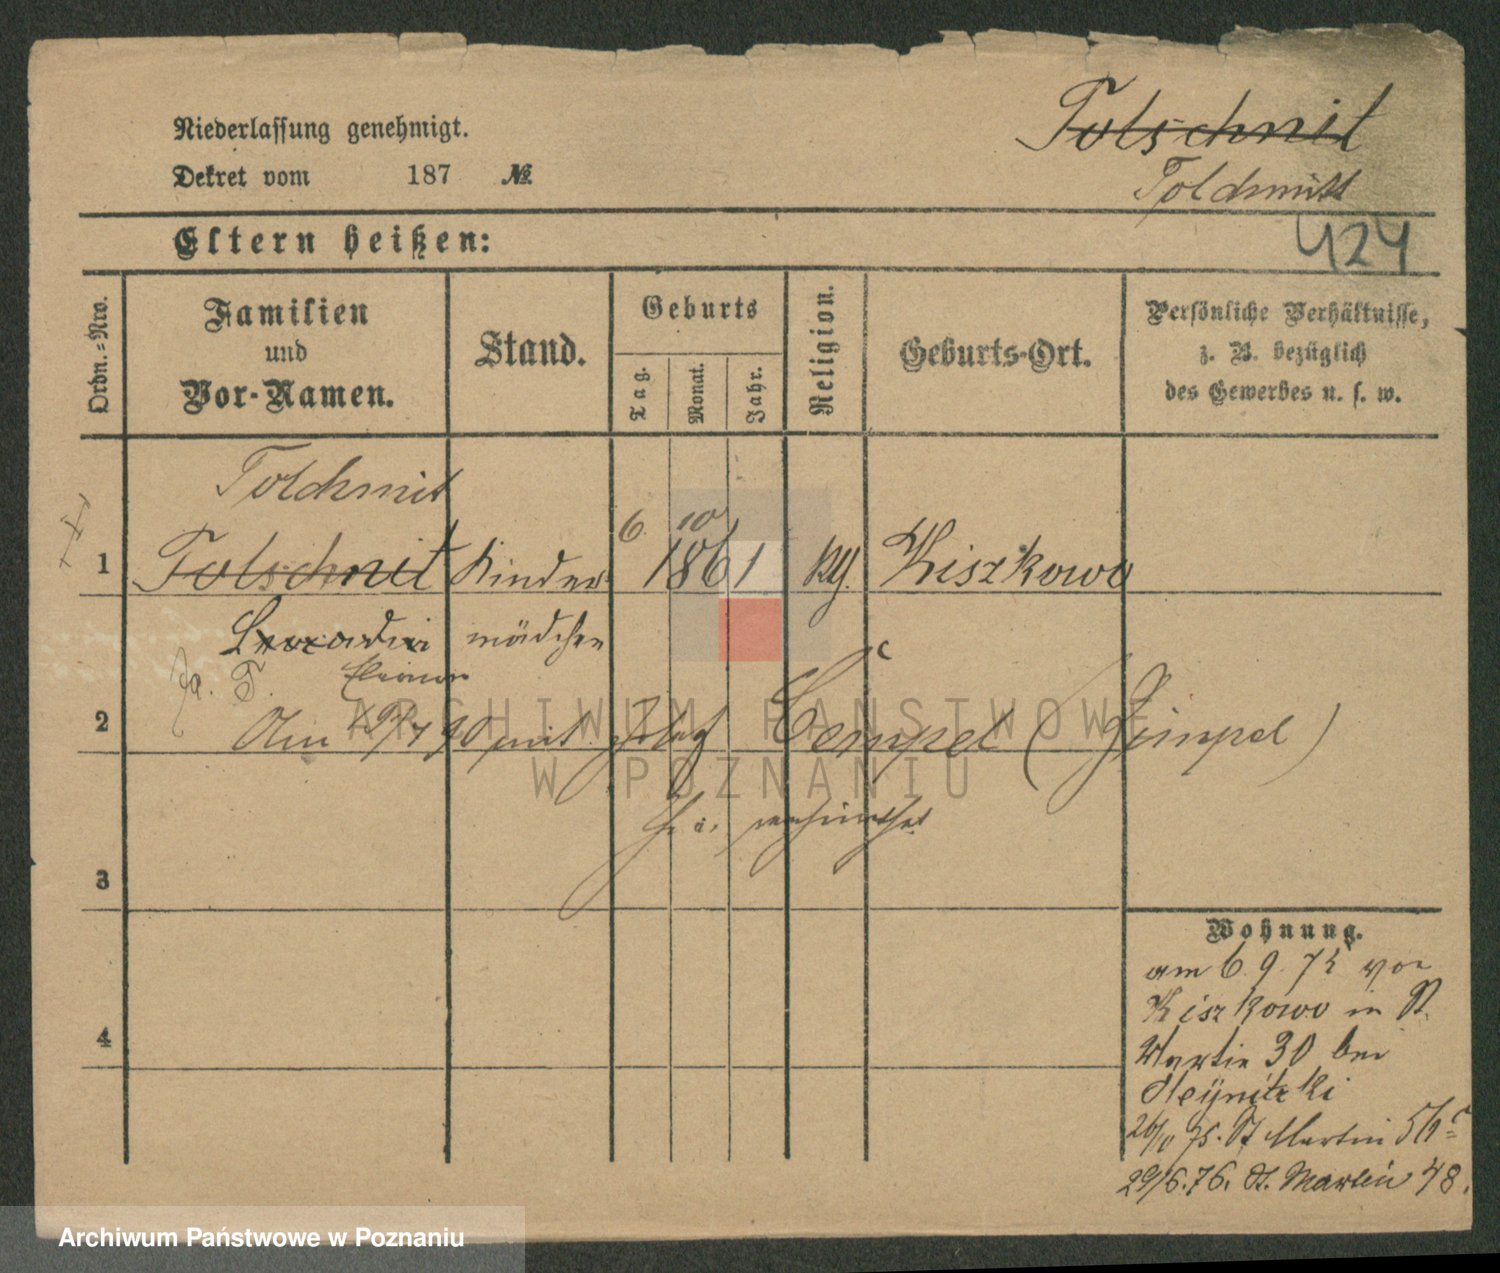 Niederlassung genehmigt.
Dekret vom 187 №
Tolschnit
Toldmitt
Eltern heißen:
424
Ordn.-Nro.
Familien
und
Vor-Namen.
Stand.
Geburts
Tag.
Monat.
Jahr.
Religion.
Geburts-Ort.
Persönliche Verhältnisse,
z. B. bezüglich
des Gewerbes u. s. w.
Toldmit
6. 10
1 Tolschnit Kinder 1861 Kiszkowo
mädchen
T. Eleonore
2 Am 90 mit Gempel (Gimpel)
verheirathet
3
4
Wohnung.
am 6. 9. 75 von
Kiszkowo in St.
Martin 30 bei
75. St Martin
29/6.76. St. Martin 48.
ARCHIWUM PAŃSTWOWE
W POZNANIU
Archiwum Państwowe w Poznaniu